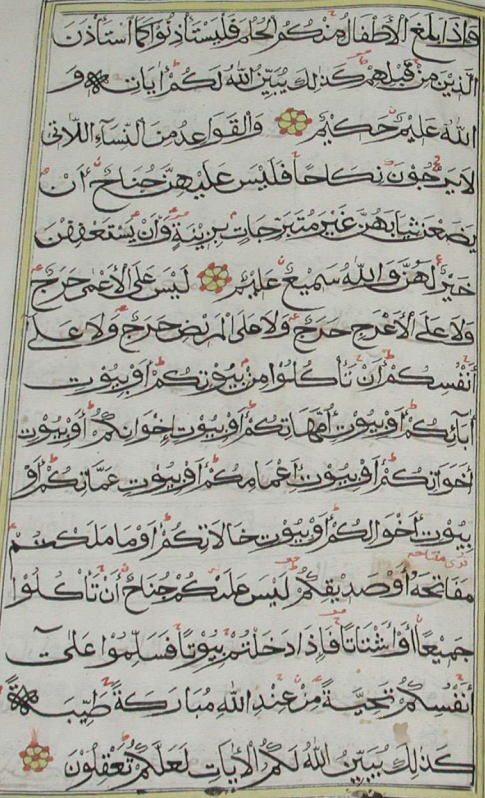 وَإِذَا بَلَغَ الْأَطْفَالُ مِنْكُمُ الْحُلُمَ فَلْيَسْتَأْذِنُوا كَمَا اسْتَأْذَنَ
الَّذِينَ مِنْ قَبْلِهِمْ كَذَلِكَ يُبَيِّنُ اللَّهُ لَكُمْ آيَاتِهِ وَ
اللَّهُ عَلِيمٌ حَكِيمٌ وَالْقَوَاعِدُ مِنَ النِّسَاءِ اللَّاتِي
لَا يَرْجُونَ نِكَاحًا فَلَيْسَ عَلَيْهِنَّ جُنَاحٌ أَنْ
يَضَعْنَ ثِيَابَهُنَّ غَيْرَ مُتَبَرِّجَاتٍ بِزِينَةٍ وَأَنْ يَسْتَعْفِفْنَ
خَيْرٌ لَهُنَّ وَاللَّهُ سَمِيعٌ عَلِيمٌ لَيْسَ عَلَى الْأَعْمَى حَرَجٌ
وَلَا عَلَى الْأَعْرَجِ حَرَجٌ وَلَا عَلَى الْمَرِيضِ حَرَجٌ وَلَا عَلَى
أَنْفُسِكُمْ أَنْ تَأْكُلُوا مِنْ بُيُوتِكُمْ أَوْ بُيُوتِ
آبَائِكُمْ أَوْ بُيُوتِ أُمَّهَاتِكُمْ أَوْ بُيُوتِ إِخْوَانِكُمْ أَوْ بُيُوتِ
أَخَوَاتِكُمْ أَوْ بُيُوتِ أَعْمَامِكُمْ أَوْ بُيُوتِ عَمَّاتِكُمْ أَوْ
بُيُوتِ أَخْوَالِكُمْ أَوْ بُيُوتِ خَالَاتِكُمْ أَوْ مَا مَلَكْتُمْ
مَفَاتِحَهُ أَوْ صَدِيقِكُمْ لَيْسَ عَلَيْكُمْ جُنَاحٌ أَنْ تَأْكُلُوا
جَمِيعًا أَوْ أَشْتَاتًا فَإِذَا دَخَلْتُمْ بُيُوتًا فَسَلِّمُوا عَلَى
أَنْفُسِكُمْ تَحِيَّةً مِنْ عِنْدِ اللَّهِ مُبَارَكَةً طَيِّبَةً
كَذَلِكَ يُبَيِّنُ اللَّهُ لَكُمُ الْآيَاتِ لَعَلَّكُمْ تَعْقِلُونَ